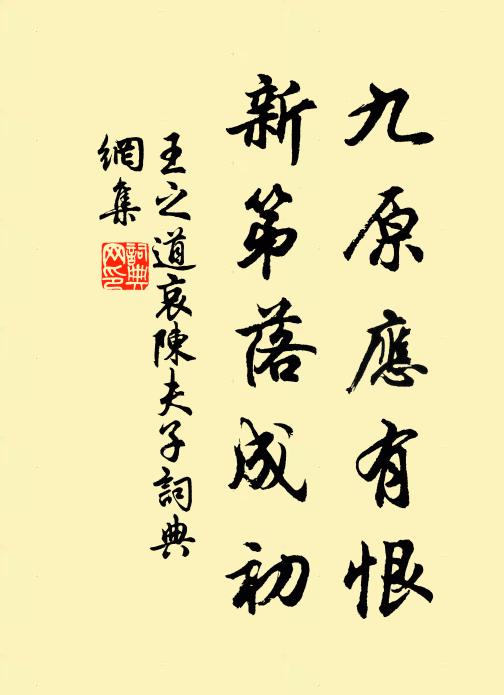 九原應有恨
新第落成初
王之道哀陳夫子詞典
網集
詞典
网印